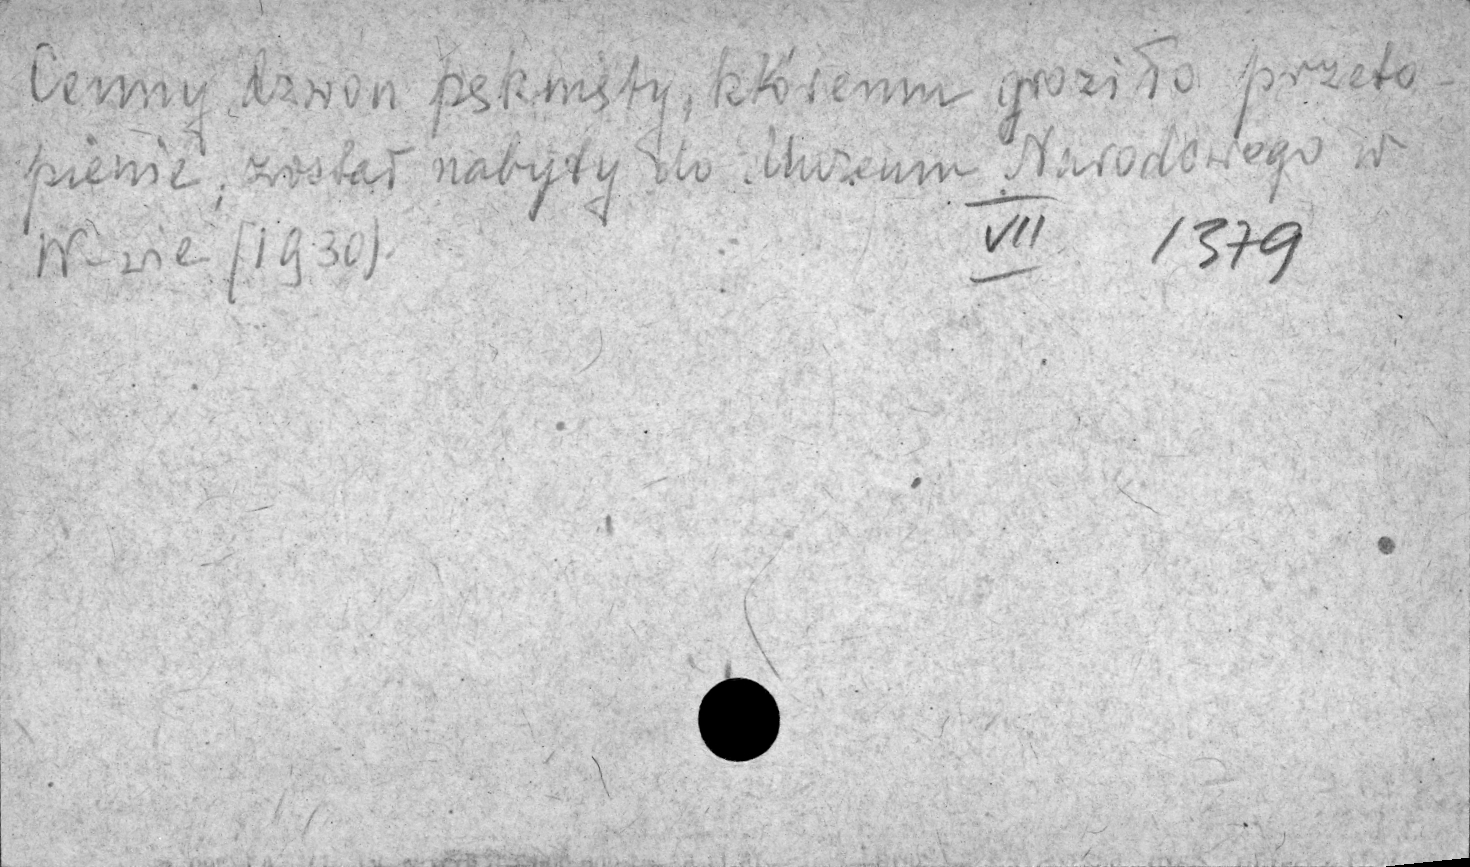 Cenny dzwon pęknięty, któremu groziło przeto-
pienie, został nabyty do Muzeum Narodowego w
W-wie (1930).
VII 1379